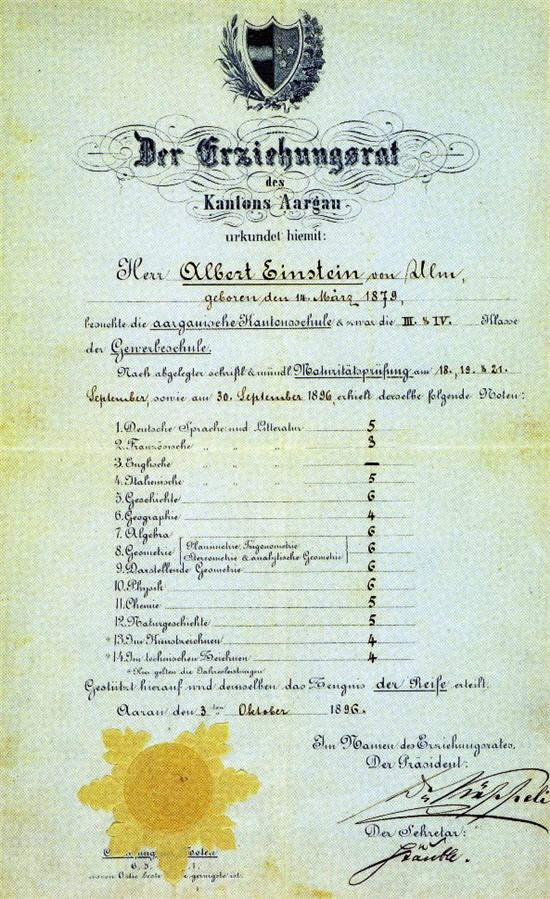 Der Erziehungsrat
des
Kantons Aargau
urkundet hiemit:
Herr Albert Einstein von Ulm,
geboren den 14. März 1879,
besuchte die aargauische Kantonsschule & zwar die III. & IV. Klasse
der Gewerbeschule.
Nach abgelegter schriftl. & mündl. Maturitätsprüfung am 18., 19. & 21.
September, sowie am 30. September 1896, erhielt derselbe folgende Noten:
1. Deutsche Sprache und Litteratur 5
2. Französische „ „ „ 3
3. Englische „ „ „ —
4. Italienische „ „ „ 5
5. Geschichte 6
6. Geographie 4
7. Algebra 6
8. Geometrie Planimetrie, Trigonometrie
Stereometrie & analytische Geometrie 6
9. Darstellende Geometrie 6
10. Physik 6
11. Chemie 5
12. Naturgeschichte 5
* 13. Im Kunstzeichnen 4
* 14. Im technischen Zeichnen 4
* Hier gelten die Jahresleistungen
Gestützt hierauf wird demselben das Zeugnis der Reife erteilt.
Aarau den 3ten Oktober 1896.
Im Namen des Erziehungsrates,
Der Präsident:
Der Sekretär:
Noten
6, 5
beste geringste ist.